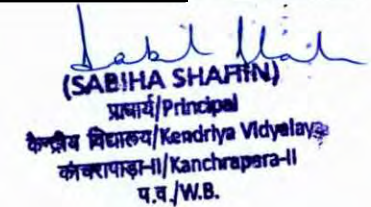 (SABIHA SHAHIN)
प्राचार्य/Principal
केन्द्रीय विद्यालय/Kendriya Vidyalaya
कांचरापाड़ा-II/Kanchrapara-II
प.व./W.B.